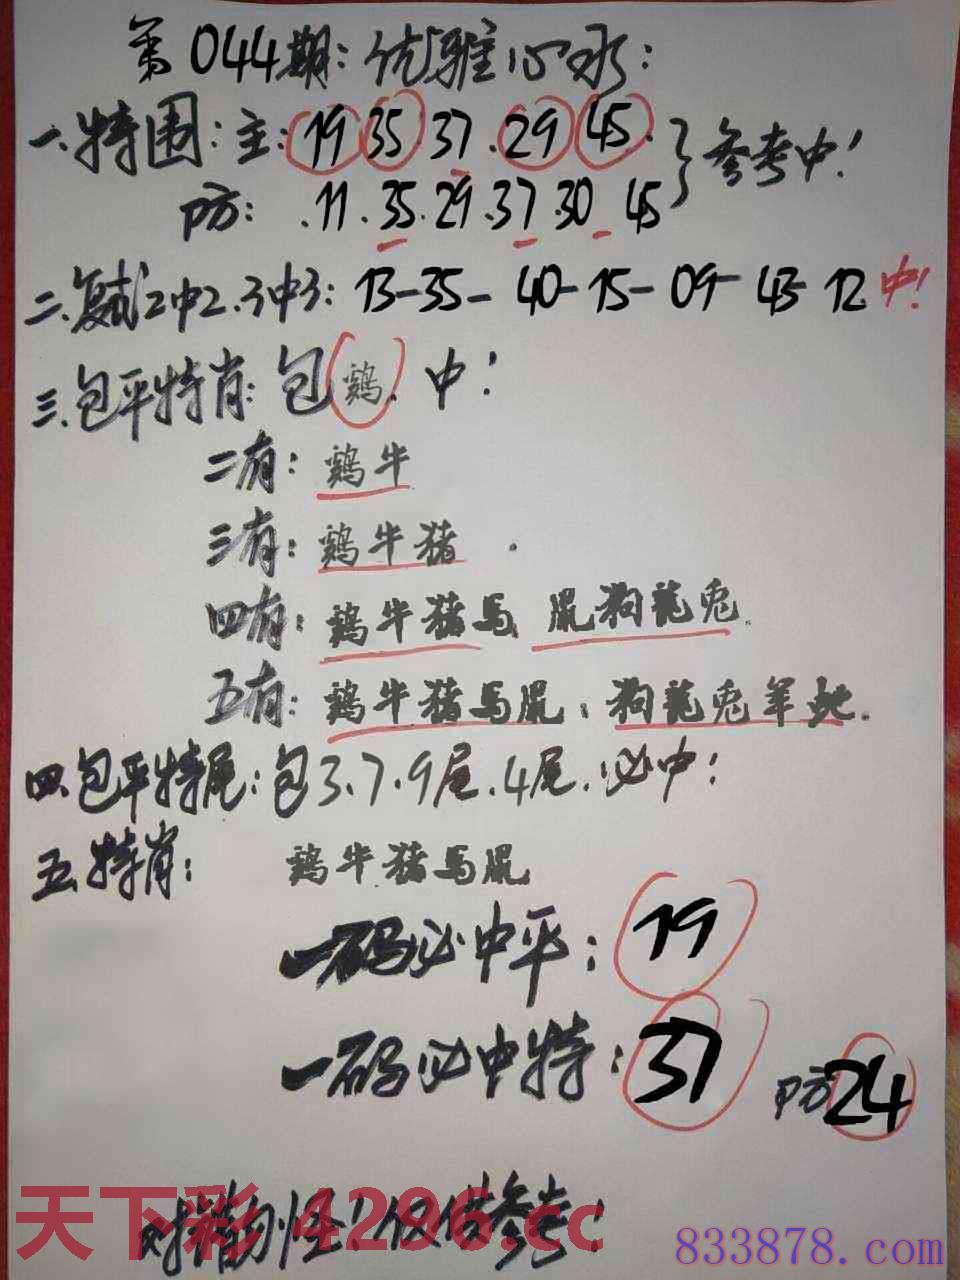 第044期:优雅心水:
一.特围:主:19 35.37.29.45.}参考中!
防:.11.35.29.37.30 45
二.复试2中2.3中3:13-35-40-15-09-43-12 中!
三.包平特肖:包鷄.中!
二有:鷄牛
三有:鷄牛猪.
四有:鷄牛猪馬 鼠狗龍兔.
五有:鷄牛猪馬鼠:狗龍兔羊蛇.
四.包平特尾:包3.7.9尾.4尾.必中!
五.特肖:鷄牛.猪馬鼠
一码必中平:19
一码必中特:37 防24
对错勿怪!仅供参考!
天下彩 4296.cc
833878.com